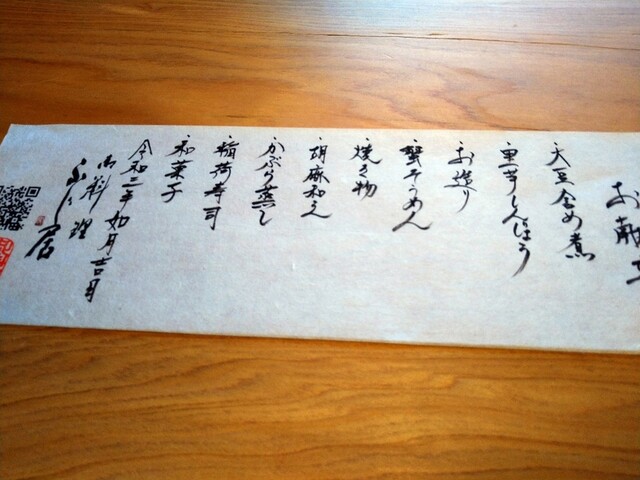 お献立
大豆含め煮
里芋しんじょう
お造り
蟹そうめん
焼き物
胡麻和え
かぶら蒸し
稲荷寿司
和菓子
令和三年如月吉日
御料理
居